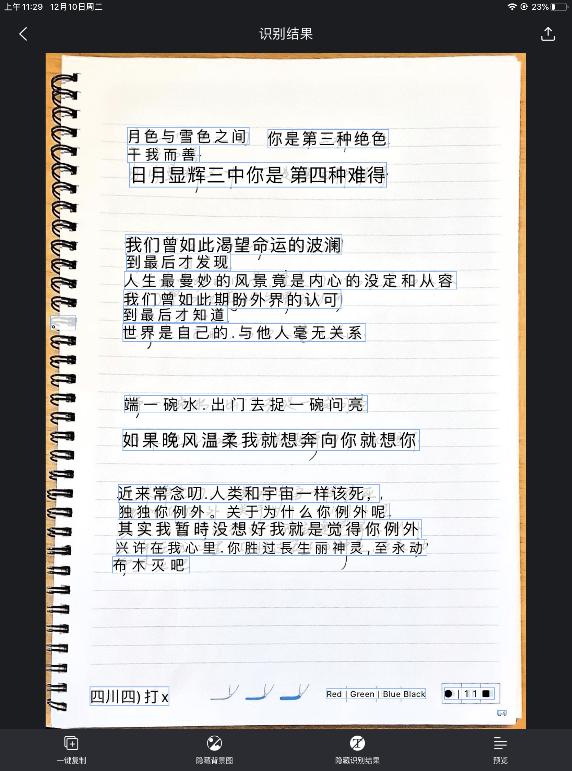 上午11:29 12月10日周二 23%
识别结果
月色与雪色之间 你是第三种绝色
干我而善
日月显辉三中你是 第四种难得
我们曾如此渴望命运的波澜
到最后才发现
人生最曼妙的风景竟是内心的没定和从容
我们曾如此期盼外界的认可
到最后才知道
世界是自己的.与他人毫无关系
端一碗水.出门去捉一碗问亮
如果晚风温柔我就想奔向你就想你
近来常念叨.人类和宇宙一样该死，.
独独你例外。关于为什么你例外呢.
其实我暂時没想好我就是觉得你例外
兴许在我心里.你胜过長生丽神灵,至永动'
布木灭吧
四川四) 打x
Red | Green | Blue Black
● | 1 1 ■
一键复制 隐藏背景图 隐藏识别结果 预览